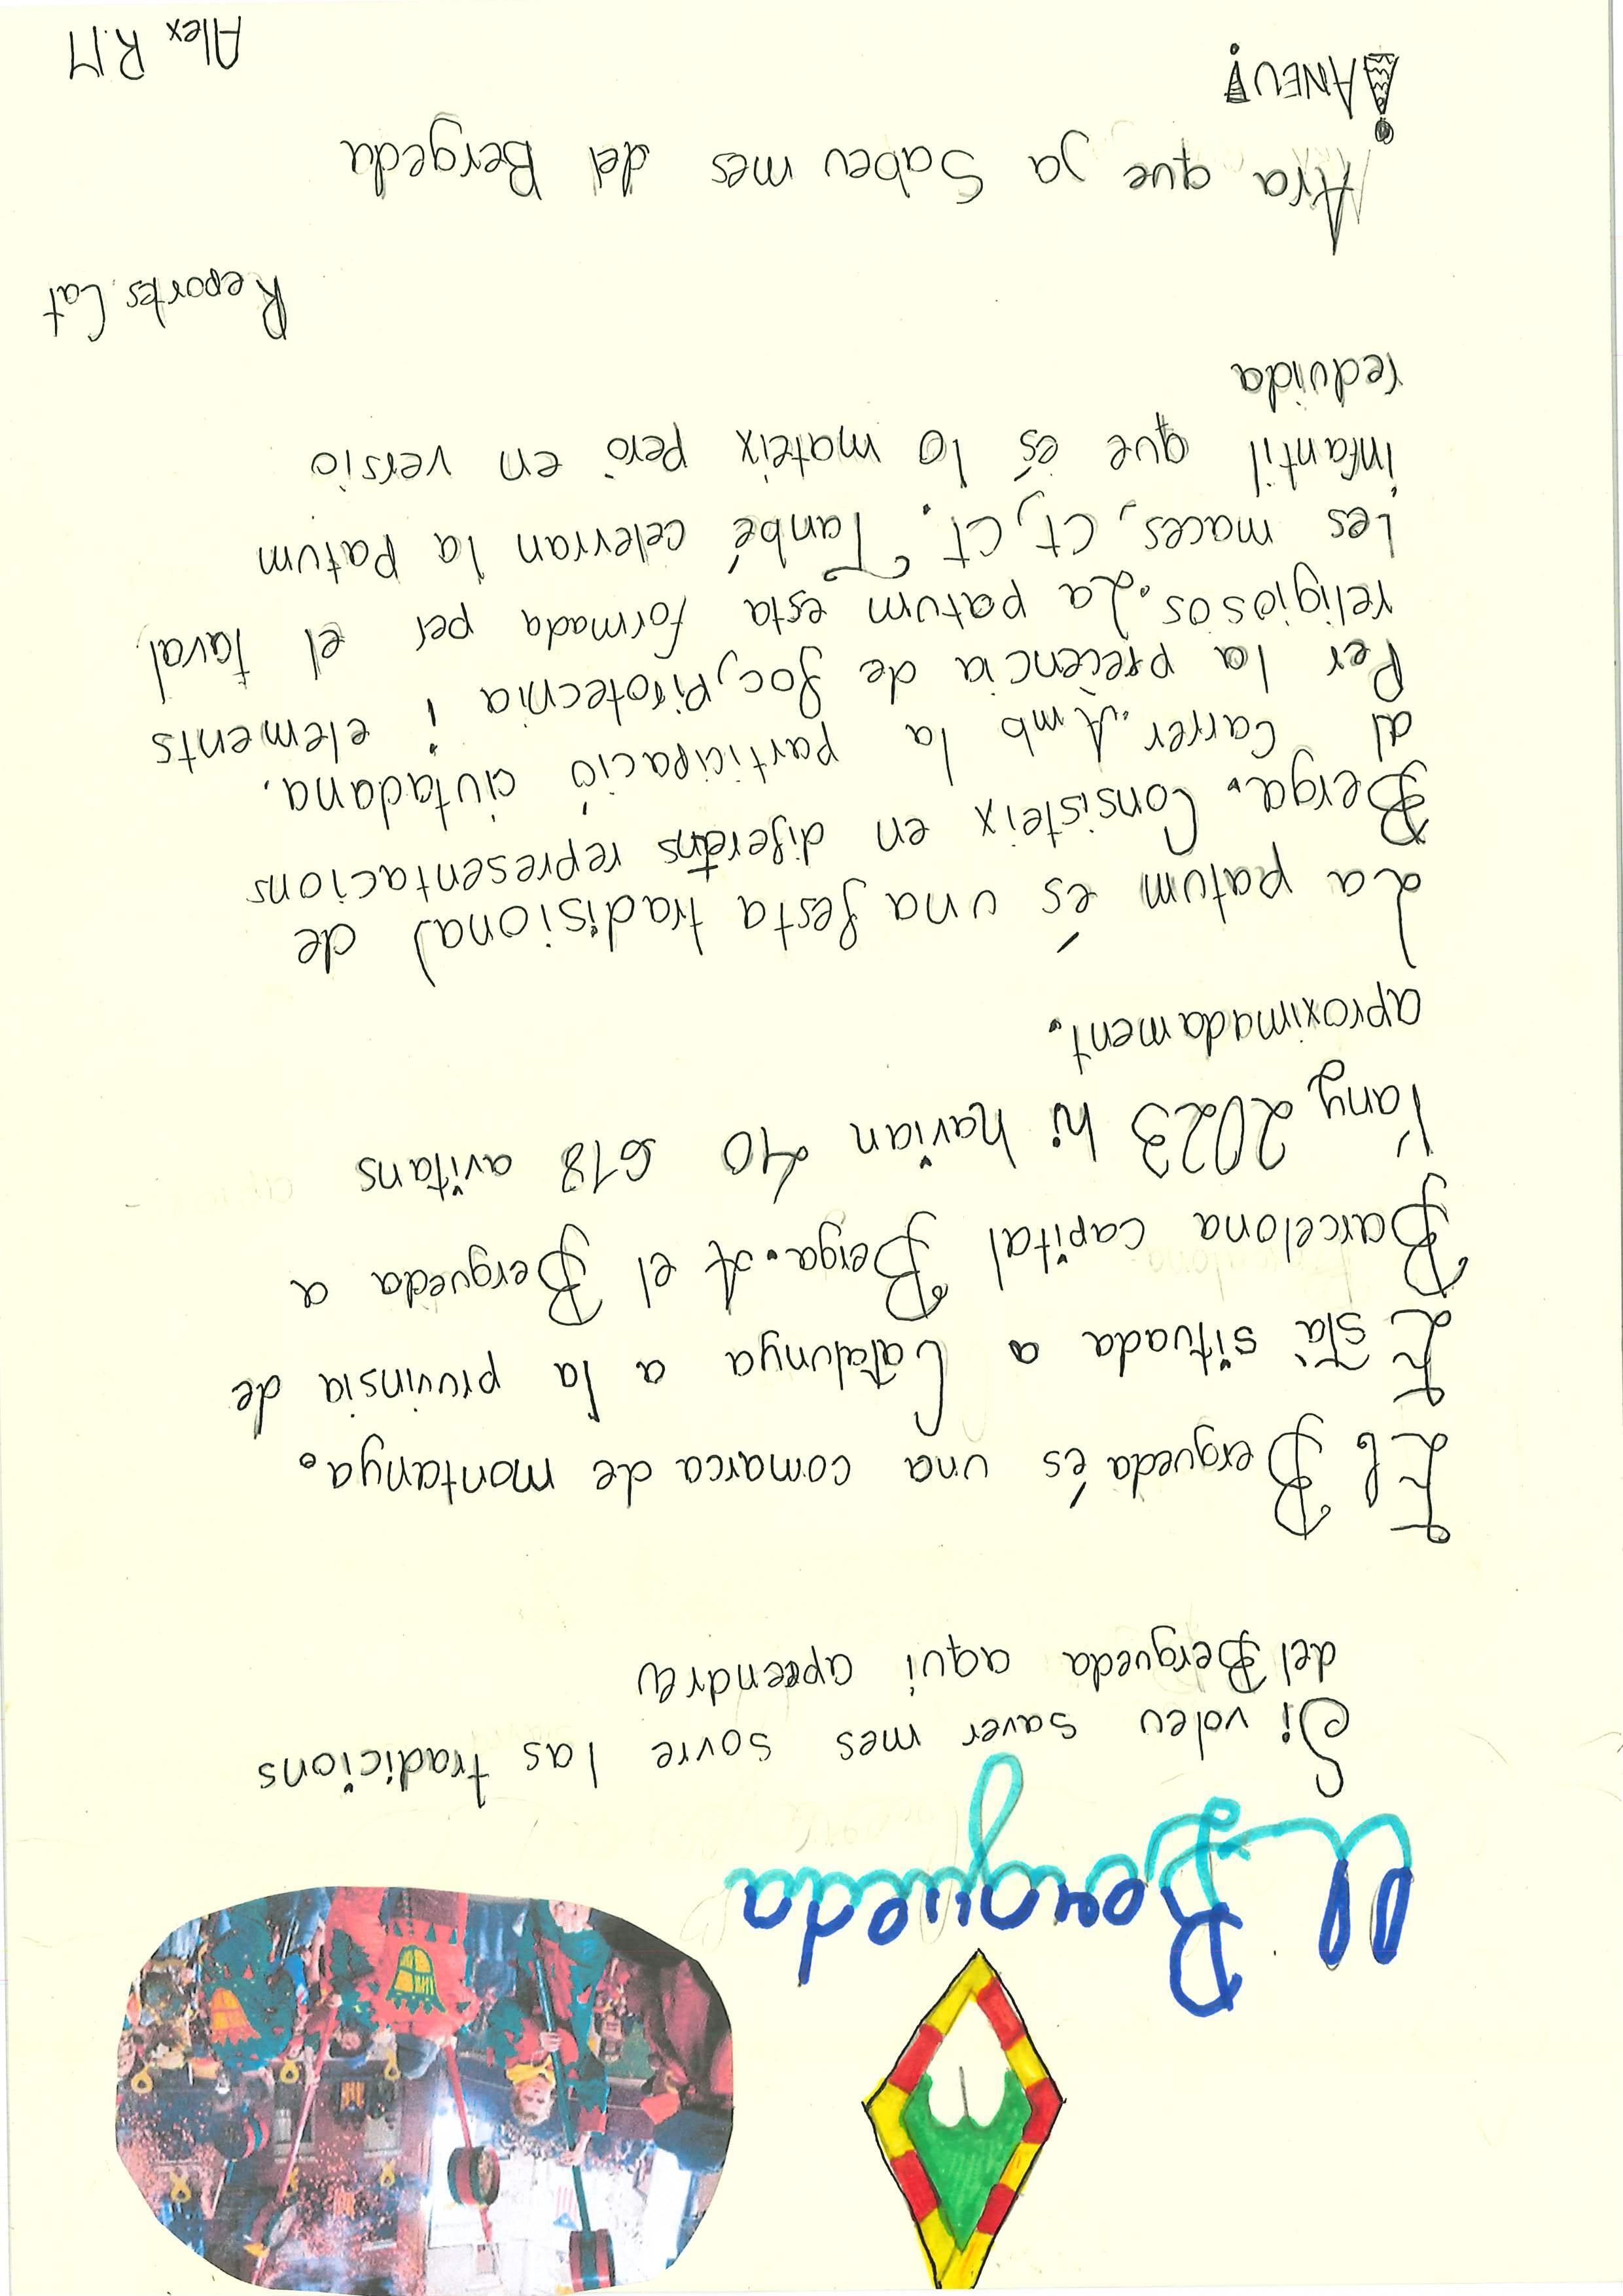 El Bergueda
Si voleu saver mes sovre las tradicions
del Bergueda aqui aprendreu
El Bergueda és una comarca de montanya.
Està situada a Catalunya a la provinsia de
Barcelona capital Berga. A el Bergueda a
l'any 2023 hi havian 40 618 avitans
aproximadament.
La patum és una festa tradisional de
Berga. Consisteix en diferetns representacions
al Carrer. Amb la participació ciutadana,
Per la precència de foc, pirotecnia i elements
religiosos. La patum esta formada per el taval,
Les maces, ct, ct. També celevran la Patum
infantil que és lo mateix però en versio
reduida
Reports Cat
Ara que ja Sabeu mes del Bergeda
¡ANEU!
Alex R.M